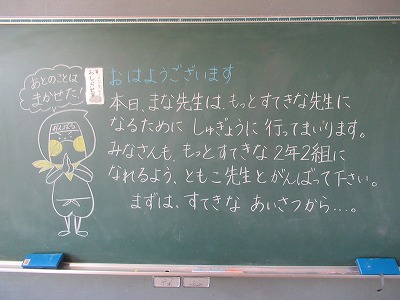 あとのことは
まかせた!
おはようございます
本日、まな先生は、もっとすてきな先生に
なるために しゅぎょうに 行ってまいります。
みなさんも、もっとすてきな 2年2組に
なれるよう、ともこ先生とがんばって下さい。
まずは、すてきな あいさつから…。